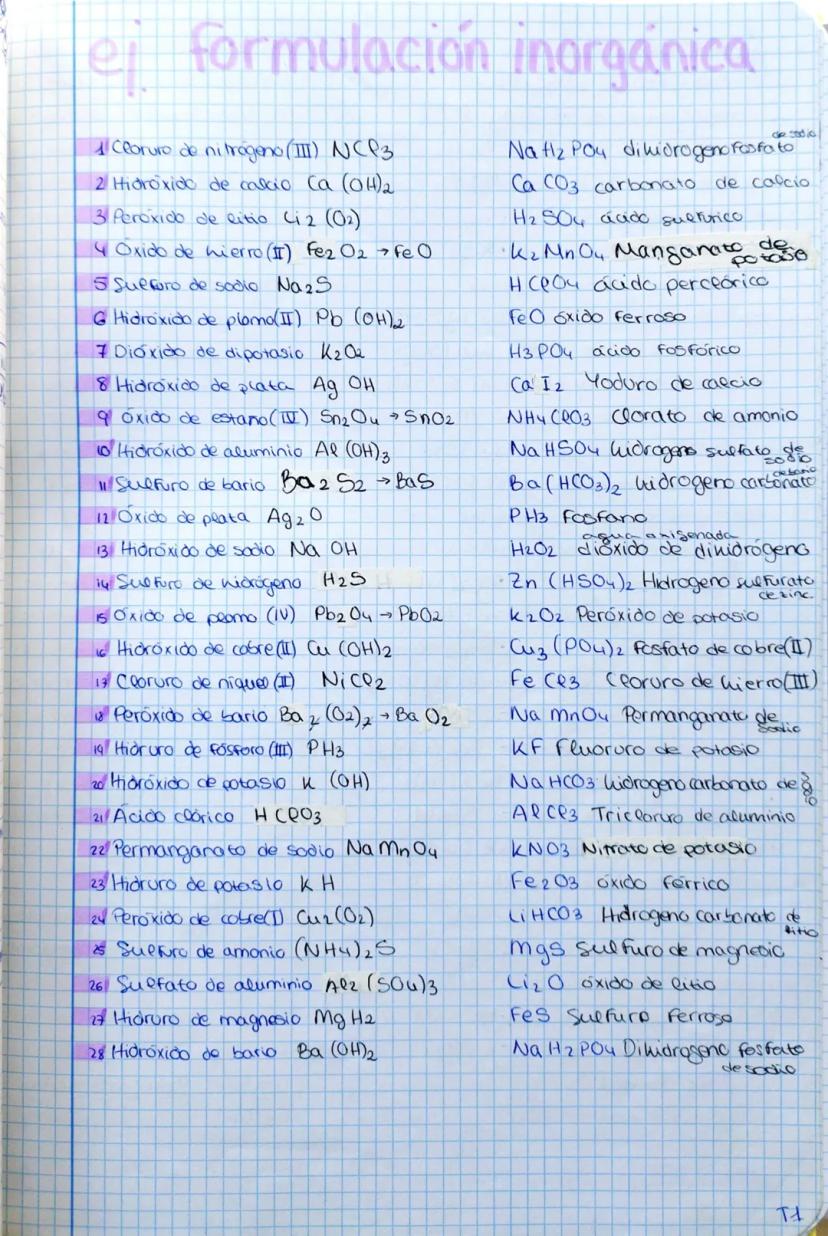 ej. formulación inorgánica
1 Cloruro de nitrógeno (III) NCl3
2 Hidróxido de calcio Ca (OH)2
3 Peróxido de litio Li2 (O2)
4 Óxido de hierro (II) Fe2O2 → FeO
5 Sulfuro de sodio Na2S
6 Hidróxido de plomo(II) Pb (OH)2
7 Dióxido de dipotasio K2O2
8 Hidróxido de plata Ag OH
9 óxido de estaño (IV) Sn2O4 → SnO2
10 Hidróxido de aluminio Al (OH)3
11 Sulfuro de bario Ba2S2 → BaS
12 Óxido de plata Ag2O
13 Hidróxido de sodio Na OH
14 Sulfuro de hidrógeno H2S
15 Óxido de plomo (IV) Pb2O4 → PbO2
16 Hidróxido de cobre (II) Cu (OH)2
17 Cloruro de níquel (II) NiCl2
18 Peróxido de bario Ba2 (O2)2 → Ba O2
19 Hidruro de fósforo (III) PH3
20 Hidróxido de potasio K (OH)
21 Ácido clórico H ClO3
22 Permanganato de sodio Na MnO4
23 Hidruro de potasio K H
24 Peróxido de cobre(I) Cu2(O2)
25 Sulfuro de amonio (NH4)2S
26 Sulfato de aluminio Al2 (SO4)3
27 Hidruro de magnesio Mg H2
28 Hidróxido de bario Ba (OH)2
Na H2 PO4 dihidrogenofosfato de sodio
Ca CO3 carbonato de calcio
H2 SO4 ácido sulfúrico
K2 MnO4 Manganato de potasio
H ClO4 ácido perclórico
FeO óxido ferroso
H3 PO4 ácido fosfórico
Ca I2 Yoduro de calcio
NH4 ClO3 Clorato de amonio
Na HSO4 hidrogeno sulfato de sodio
Ba (HCO3)2 hidrogeno carbonato
PH3 Fosfano
agua oxigenada
H2O2 dióxido de dihidrógeno
Zn (HSO4)2 Hidrogeno sulfurato de zinc
K2O2 Peróxido de potasio
Cu3 (PO4)2 Fosfato de cobre(II)
Fe Cl3 Cloruro de hierro (III)
Na MnO4 Permanganato de sodio
KF Fluoruro de potasio
Na HCO3 hidrogeno carbonato de sodio
Al Cl3 Tricloruro de aluminio
KNO3 Nitrato de potasio
Fe2O3 óxido férrico
Li HCO3 Hidrogeno carbonato de litio
MgS Sulfuro de magnesio
Li2O óxido de litio
FeS Sulfuro Ferroso
Na H2 PO4 Dihidrogeno fosfato de sodio
T1